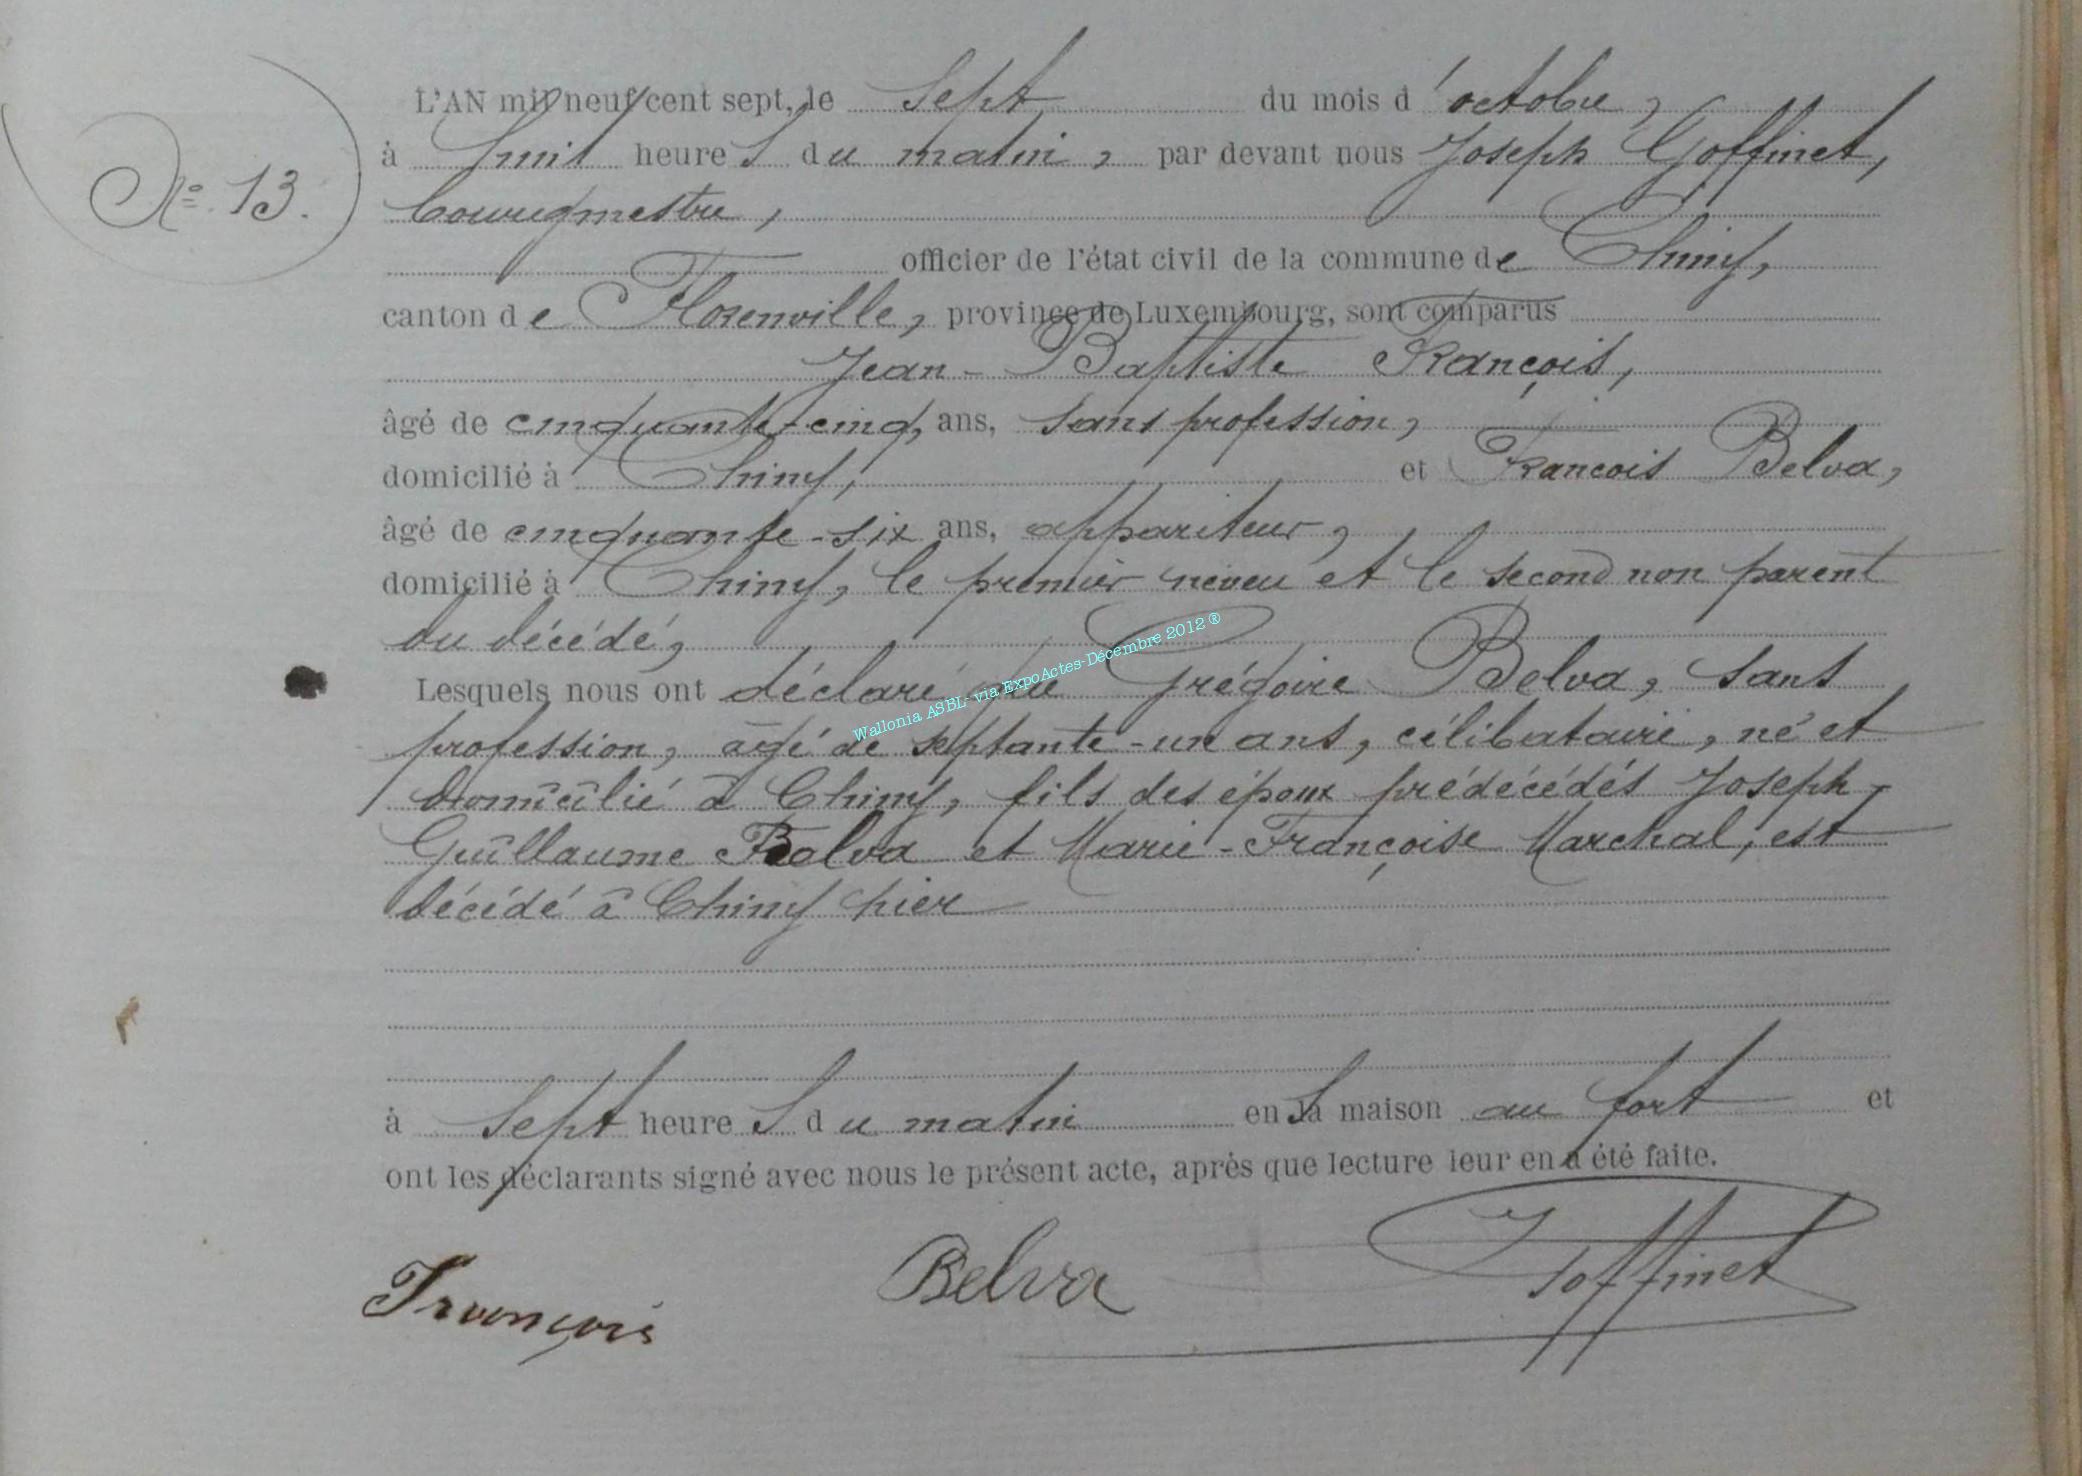 N° 13.
L'AN mil neuf cent sept, le sept du mois d'octobre,
à huit heures du matin, par devant nous Joseph Goffinet,
bourgmestre,
officier de l'état civil de la commune de Chiny,
canton de Florenville, province de Luxembourg, sont comparus
Jean-Baptiste François,
âgé de cinquante-cinq, ans, sans profession,
domicilié à Chiny, et François Belva,
âgé de cinquante-six ans, appariteur,
domicilié à Chiny, le premier neveu et le second non parent
du décédé,
Lesquels nous ont déclaré que Grégoire Belva, sans
profession, âgé de septante-un ans, célibataire, né et
domicilié à Chiny, fils des époux prédécédés Joseph-
Guillaume Balva et Marie-Françoise Marchal, est
décédé à Chiny hier
à sept heures du matin en sa maison au fort et
ont les déclarants signé avec nous le présent acte, après que lecture leur en a été faite.
François Belva Goffinet
Wallonia ASBL- via ExpoActes-Décembre 2012 ®